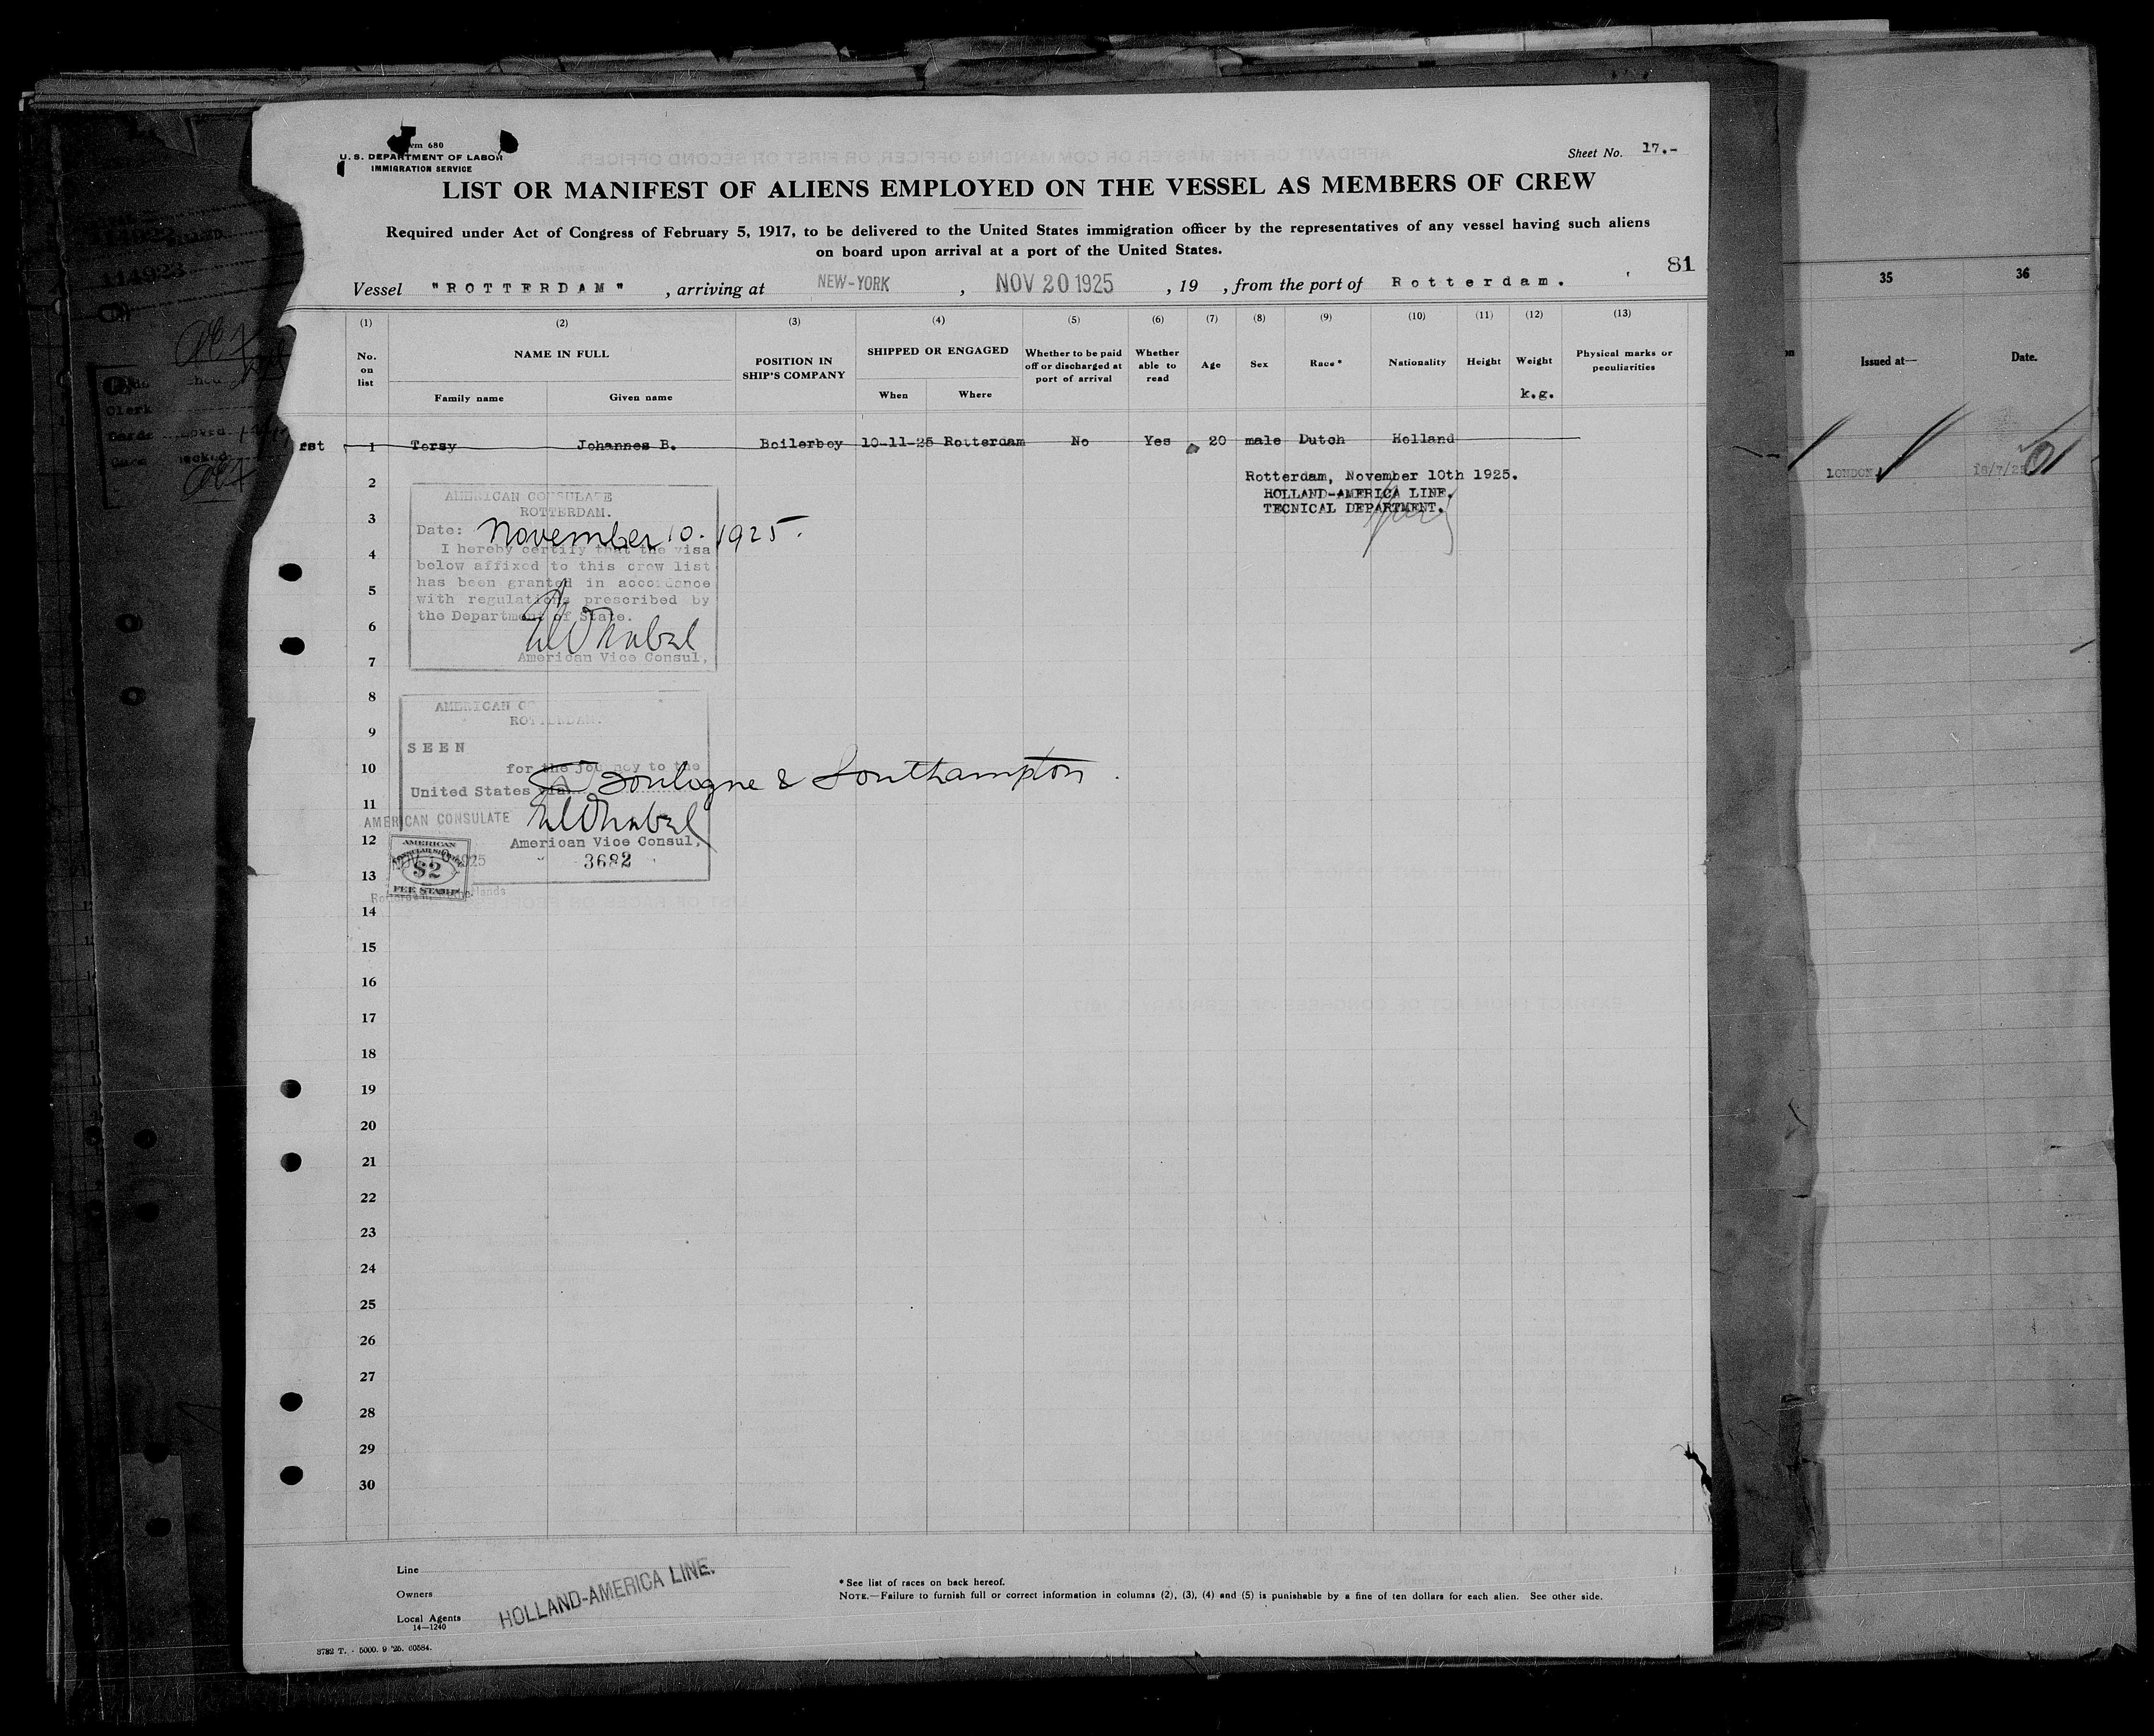 Form 680
U. S. DEPARTMENT OF LABOR
IMMIGRATION SERVICE
Sheet No. 17.-
LIST OR MANIFEST OF ALIENS EMPLOYED ON THE VESSEL AS MEMBERS OF CREW
Required under Act of Congress of February 5, 1917, to be delivered to the United States immigration officer by the representatives of any vessel having such aliens
on board upon arrival at a port of the United States.
81
Vessel "ROTTERDAM" , arriving at NEW-YORK , NOV 20 1925 , 19 , from the port of Rotterdam.
(1) (2) (3) (4) (5) (6) (7) (8) (9) (10) (11) (12) (13)
No. on list NAME IN FULL POSITION IN SHIP'S COMPANY SHIPPED OR ENGAGED Whether to be paid off or discharged at port of arrival Whether able to read Age Sex Race* Nationality Height Weight Physical marks or peculiarities
Family name Given name When Where k.g.
rst 1 Torsy Johannes B. Boilerboy 10-11-25 Rotterdam No Yes 20 male Dutch Holland
Rotterdam, November 10th 1925.
HOLLAND-AMERICA LINE.
TECNICAL DEPARTMENT.
2
3
4
5
6
7
8
9
10
11
12
13
14
15
16
17
18
19
20
21
22
23
24
25
26
27
28
29
30
AMERICAN CONSULATE
ROTTERDAM.
Date: November 10. 1925.
I hereby certify that the visa
below affixed to this crew list
has been granted in accordance
with regulations prescribed by
the Department of State.
American Vice Consul,
AMERICAN
ROTTERDAM.
SEEN
for the journey to the
United States via Boulogne & Southampton
AMERICAN CONSULATE
American Vice Consul,
3682
AMERICAN
$2
FEE STAMP
NOV 1925
Line
Owners
Local Agents
14—1240
HOLLAND-AMERICA LINE.
* See list of races on back hereof.
NOTE.—Failure to furnish full or correct information in columns (2), (3), (4) and (5) is punishable by a fine of ten dollars for each alien. See other side.
3782 T. - 5000. 9 '25. 60584.
35 36
Issued at— Date.
LONDON
114923
Clerk